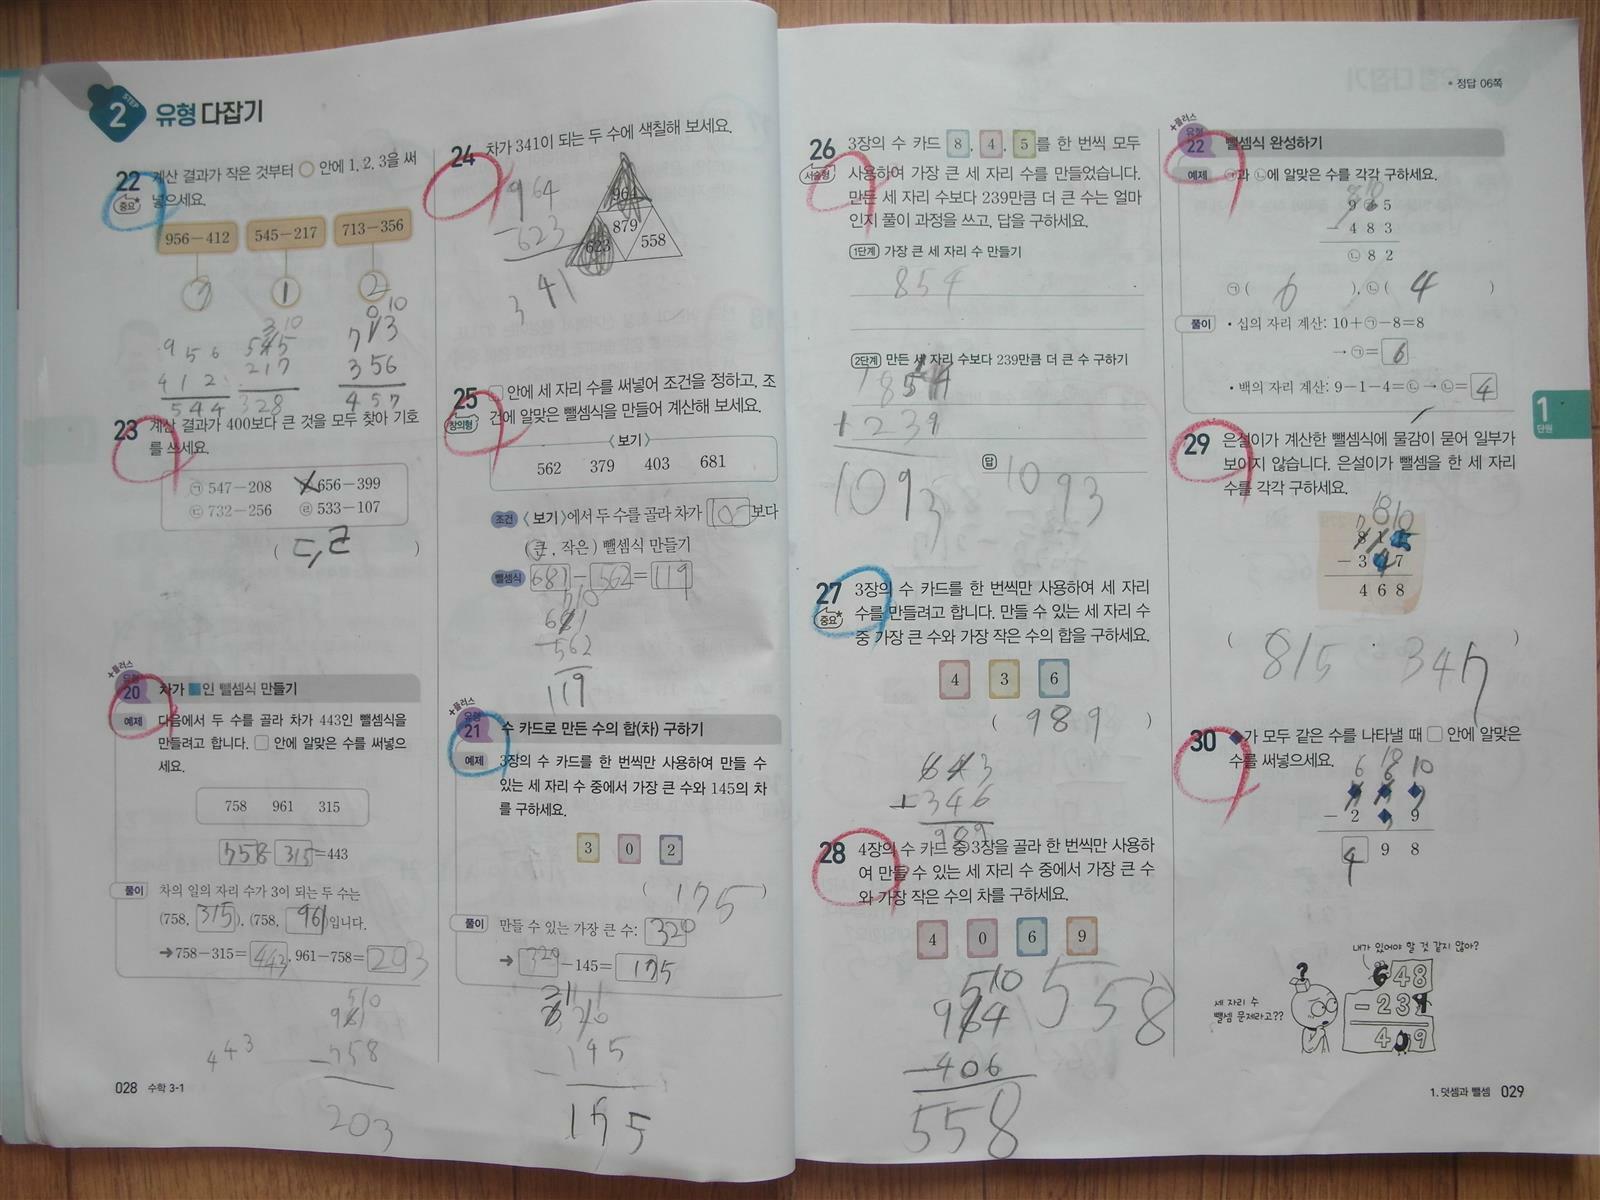 STEP
2 유형 다잡기
22 계산 결과가 작은 것부터 ○ 안에 1, 2, 3을 써
중요 넣으세요.
956-412 545-217 713-356
3 1 2
3 10 0 10
956 545 713
412 217 356
544 328 457
23 계산 결과가 400보다 큰 것을 모두 찾아 기호
를 쓰세요.
㉠ 547-208 656-399
㉢ 732-256 ㉣ 533-107
( ㄷ, ㄹ )
+플러스
유형
20 차가 ■인 뺄셈식 만들기
예제 다음에서 두 수를 골라 차가 443인 뺄셈식을
만들려고 합니다. □ 안에 알맞은 수를 써넣으
세요.
758 961 315
758-315=443
풀이 차의 일의 자리 수가 3이 되는 두 수는
(758, 315), (758, 961)입니다.
➔758-315=443, 961-758=203
5 10
961
443 -758
203
028 수학 3-1
24 차가 341이 되는 두 수에 색칠해 보세요.
964
964
879
-623
623 558
341
25 □ 안에 세 자리 수를 써넣어 조건을 정하고, 조
창의형 건에 알맞은 뺄셈식을 만들어 계산해 보세요.
〈보기〉
562 379 403 681
조건 〈보기〉에서 두 수를 골라 차가 100보다
(큰, 작은) 뺄셈식 만들기
뺄셈식 681-562=119
7 10
681
-562
119
+플러스
유형
21 수 카드로 만든 수의 합(차) 구하기
예제 3장의 수 카드를 한 번씩만 사용하여 만들 수
있는 세 자리 수 중에서 가장 큰 수와 145의 차
를 구하세요.
3 0 2
( 175 )
풀이 만들 수 있는 가장 큰 수: 320
➔ 320-145=175
-145
175
• 정답 06쪽
26 3장의 수 카드 8, 4, 5를 한 번씩 모두
서술형 사용하여 가장 큰 세 자리 수를 만들었습니다.
만든 세 자리 수보다 239만큼 더 큰 수는 얼마
인지 풀이 과정을 쓰고, 답을 구하세요.
1단계 가장 큰 세 자리 수 만들기
854
2단계 만든 세 자리 수보다 239만큼 더 큰 수 구하기
854
+239
1093
답 1093
27 3장의 수 카드를 한 번씩만 사용하여 세 자리
중요 수를 만들려고 합니다. 만들 수 있는 세 자리 수
중 가장 큰 수와 가장 작은 수의 합을 구하세요.
4 3 6
( 989 )
643
+346
989
28 4장의 수 카드 중 3장을 골라 한 번씩만 사용하
여 만들 수 있는 세 자리 수 중에서 가장 큰 수
와 가장 작은 수의 차를 구하세요.
4 0 6 9
558
5 10
964
-406
558
+플러스
유형
22 뺄셈식 완성하기
예제 ㉠과 ㉡에 알맞은 수를 각각 구하세요.
8 10
9 5
-483
㉡82
㉠( 6 ), ㉡( 4 )
풀이 • 십의 자리 계산: 10+㉠-8=8
→ ㉠=6
• 백의 자리 계산: 9-1-4=㉡ → ㉡=4
1
단원
29 은설이가 계산한 뺄셈식에 물감이 묻어 일부가
보이지 않습니다. 은설이가 뺄셈을 한 세 자리
수를 각각 구하세요.
7 10 10
815
-347
468
( 815 347 )
30 ◆가 모두 같은 수를 나타낼 때 □ 안에 알맞은
수를 써넣으세요.
6 10 10
◆◆◆
-2◆9
498
내가 있어야 할 것 같지 않아?
?
세 자리 수
뺄셈 문제라고??
648
-239
409
1. 덧셈과 뺄셈 029